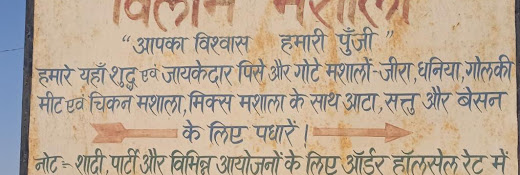 "आपका विश्वास हमारी पुँजी"
हमारे यहाँ शुद्ध एवं जायकेदार पिसे और गोटे मशालों-जीरा,धनिया,गोलकी
मीट एवं चिकन मशाला,मिक्स मशाला के साथ आटा,सत्तु और बेसन
के लिए पधारें।
नोट:- शादी,पार्टी और विभिन्न आयोजनों के लिए ऑर्डर हॉलसेल रेट में